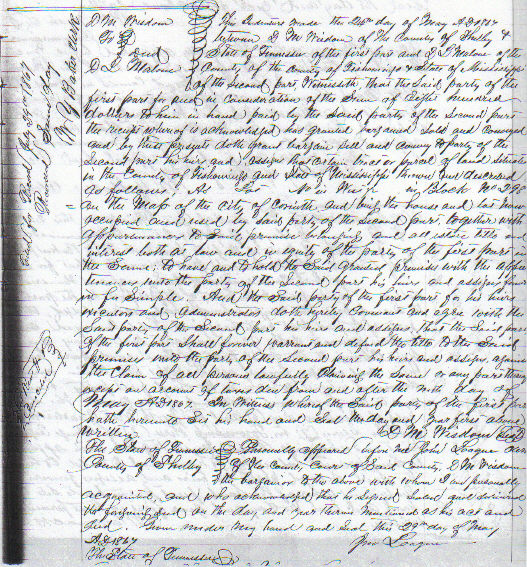 D M Wisdom
To
Deed
D L Malone
This Indenture made the day of May AD 1867
between D M Wisdom of the County of Shelby &
State of Tennessee of the first part and D L Malone of the
County of the County of Tishomingo & State of Mississippi
of the Second part Witnesseth, that the Said party of the
first part for and in Consideration of the Sum of Eight hundred
dollars to him in hand paid by the Said party of the Second part
the receipt whereof is acknowledged has granted bargained Sold and Conveyed
and by these presents doth grant bargain Sell and Convey to party of the
Second part his heirs and assigns a certain or parcel of land Situate
in the County of Tishomingo and State of Mississippi Known and described
as follows. Lot No in Block No
on the Map of the City of Corinth and being the house and lot now
occupied and used by Said party of the Second part together with
appurtenances to Said premises belonging and all estate title
interest both at law and in equity of the party of the first part in
the Same; to have and to hold the Said granted premises with the appur
tenances unto the party of the Second part his heirs and assigns for
in fee Simple. And the Said party of the first part for his heirs
executors and administrators doth hereby Covenant and agree with the
Said party of the Second part his heirs and assigns that the Said part
of the first part Shall forever warrant and defend the title to the Said
premises unto the party of the Second part his heirs and assigns against
the Claim of all persons lawfully Claiming the Same or any part thereof
except on account of taxes due from and after the day of
May AD 1867. In Witness whereof the Said party of the first part
hath hereunto Set his hand and Seal the day and year first above
written
D M Wisdom
The State of Tennessee
County of Shelby
Personally appeared before me John League
of the County Court of Said County, D M Wisdom
the bargainor to the above with whom I am personally
acquainted, and who acknowledged that he Signed Sealed and delivered
the foregoing deed on the day and year therein mentioned as his act and
deed. Given under my hand and Seal this 29 day of May
AD 1867
John League
The State of Tennessee
filed for Record July 29th 1867
Recorded Same day
M Y Baker Clerk